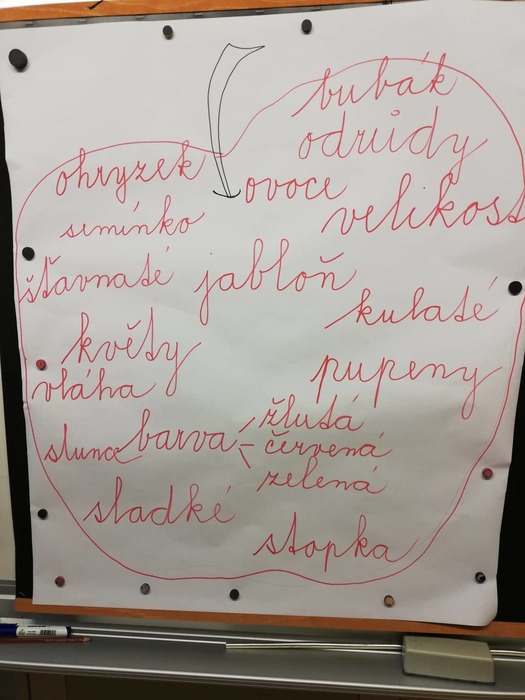 bubák
odrůdy
ohryzek
ovoce
semínko
velikost
šťavnaté
jabloň
kulaté
květy
pupeny
vláha
slunce
barva
žlutá
červená
zelená
sladké
stopka